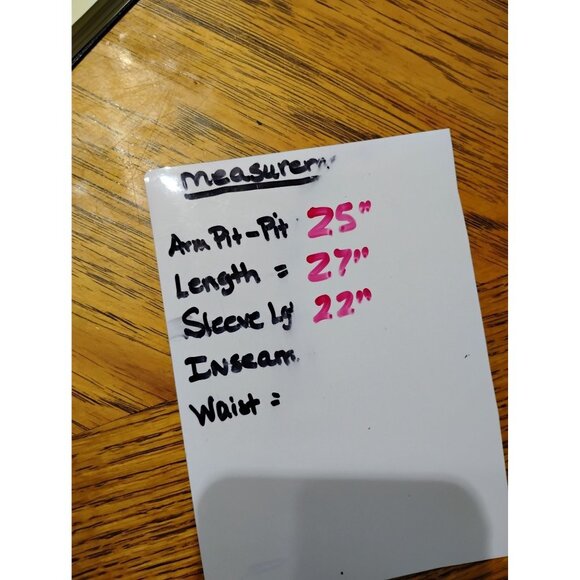 measurem
Arm Pit-Pit 25"
Length = 27"
Sleeve Lg 22"
Inseam
Waist =